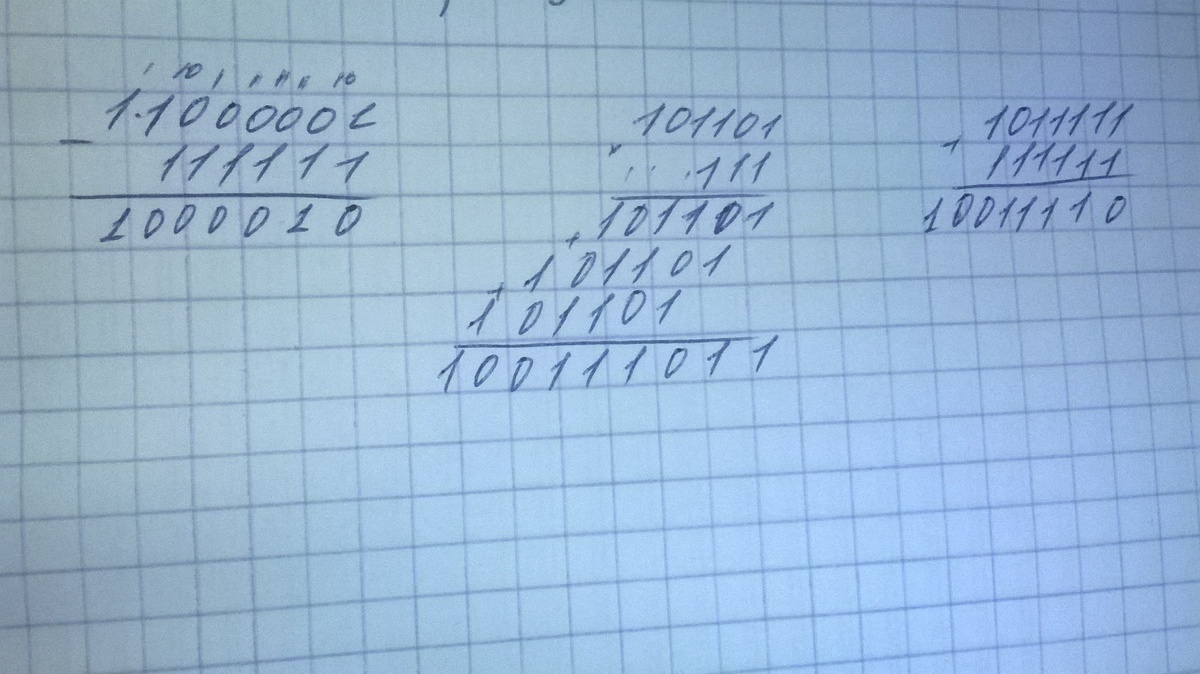 1 10 1 11 11 11 10
1·1000001
− 111111
1000010
101101
× 111
101101
+ 101101
+ 101101
100111011
1011111
+ 111111
10011110